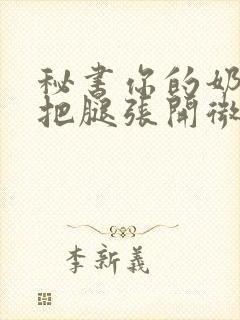 秘書你的奶
把腿張開微
李新義